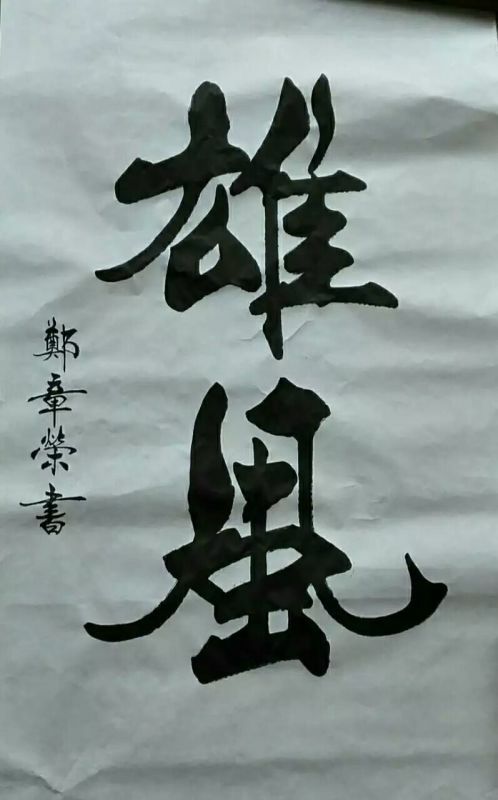 雄風
鄭章榮書